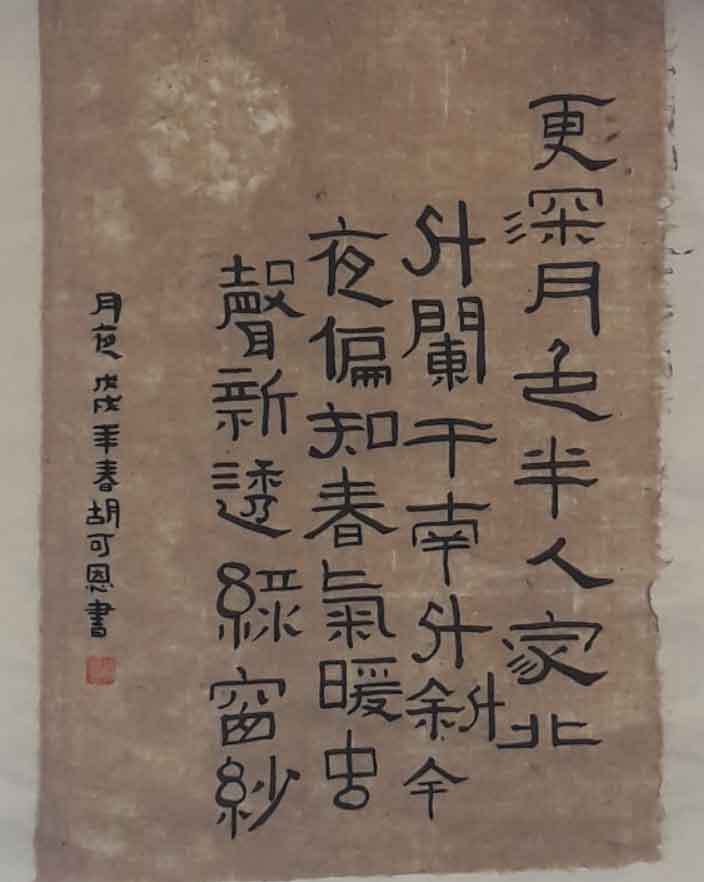 更深月色半人家北
斗闌干南斗斜今
夜偏知春氣暖虫
聲新透綠窗紗
月夜 戊戌年春胡可恩書